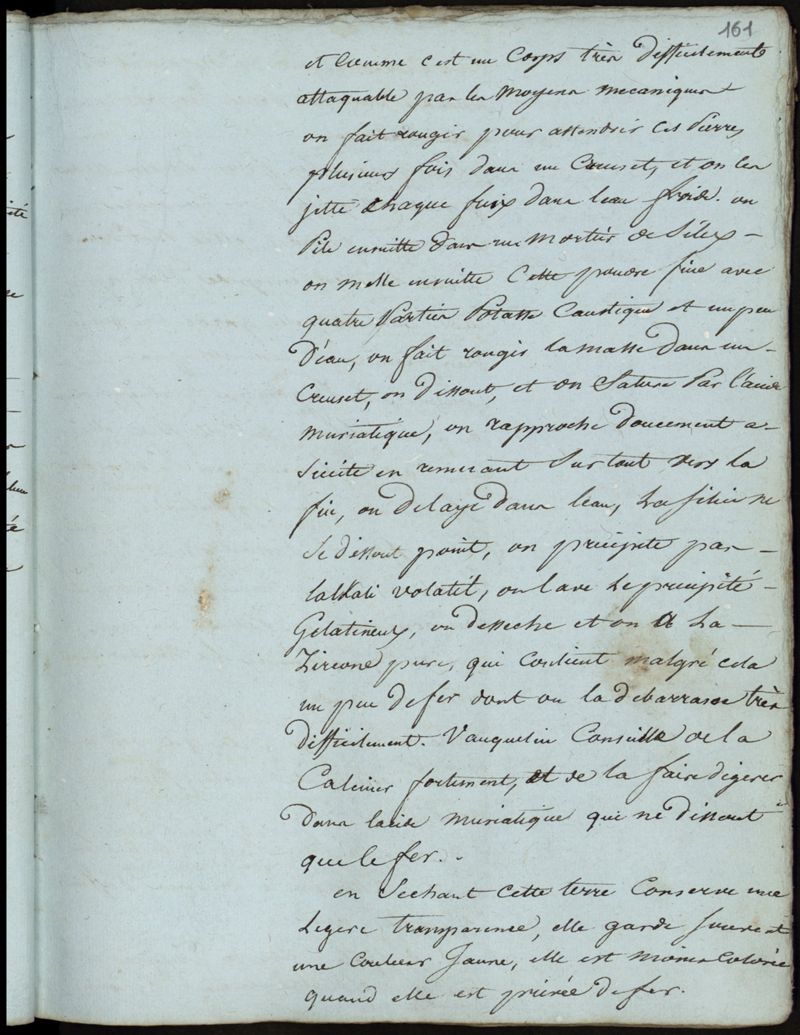 161
et comme c'est un Corps très difficilement
attaquable par les moyens mecaniques
on fait rougir pour attendrir ces Pierres
plusieurs fois dans un Creuset, et on les
jette chaque foix dans leau froide. on
Pile ensuitte dans un mortier de Silex —
on melle ensuitte Cette poudre fine avec
quatre Parties Potasse Caustique et un peu
D'eau, on fait rougir la masse Dans un —
Creuset, on Dissout, et on Sature Par l'acide
muriatique, on rapproche doucement a —
Siccité en remuant Surtout vers la
fin, on Delaye Dans leau, La silice ne
Se dissout point, on precipite par —
lalkali volatil, on lave Le precipité —
Gelatineux, on desseche et on A La —
Zircone pure, qui Contient malgré cela
un peu de fer dont on la debarrasse très
difficilement. Vauquelin Conseille de la
Calciner fortement, et de la faire digerer
Dans lacide muriatique qui ne dissout
que le fer.
en Sechant Cette terre Conserve une
Legere transparence, elle garde souvent
une Couleur Jaune, elle est moins Colorée
quand elle est privée de fer.